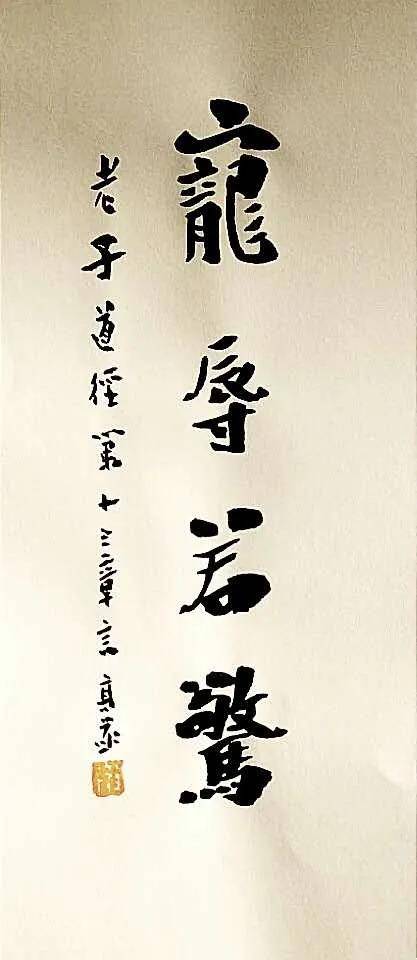 寵辱若驚
老子道徑第十三章言